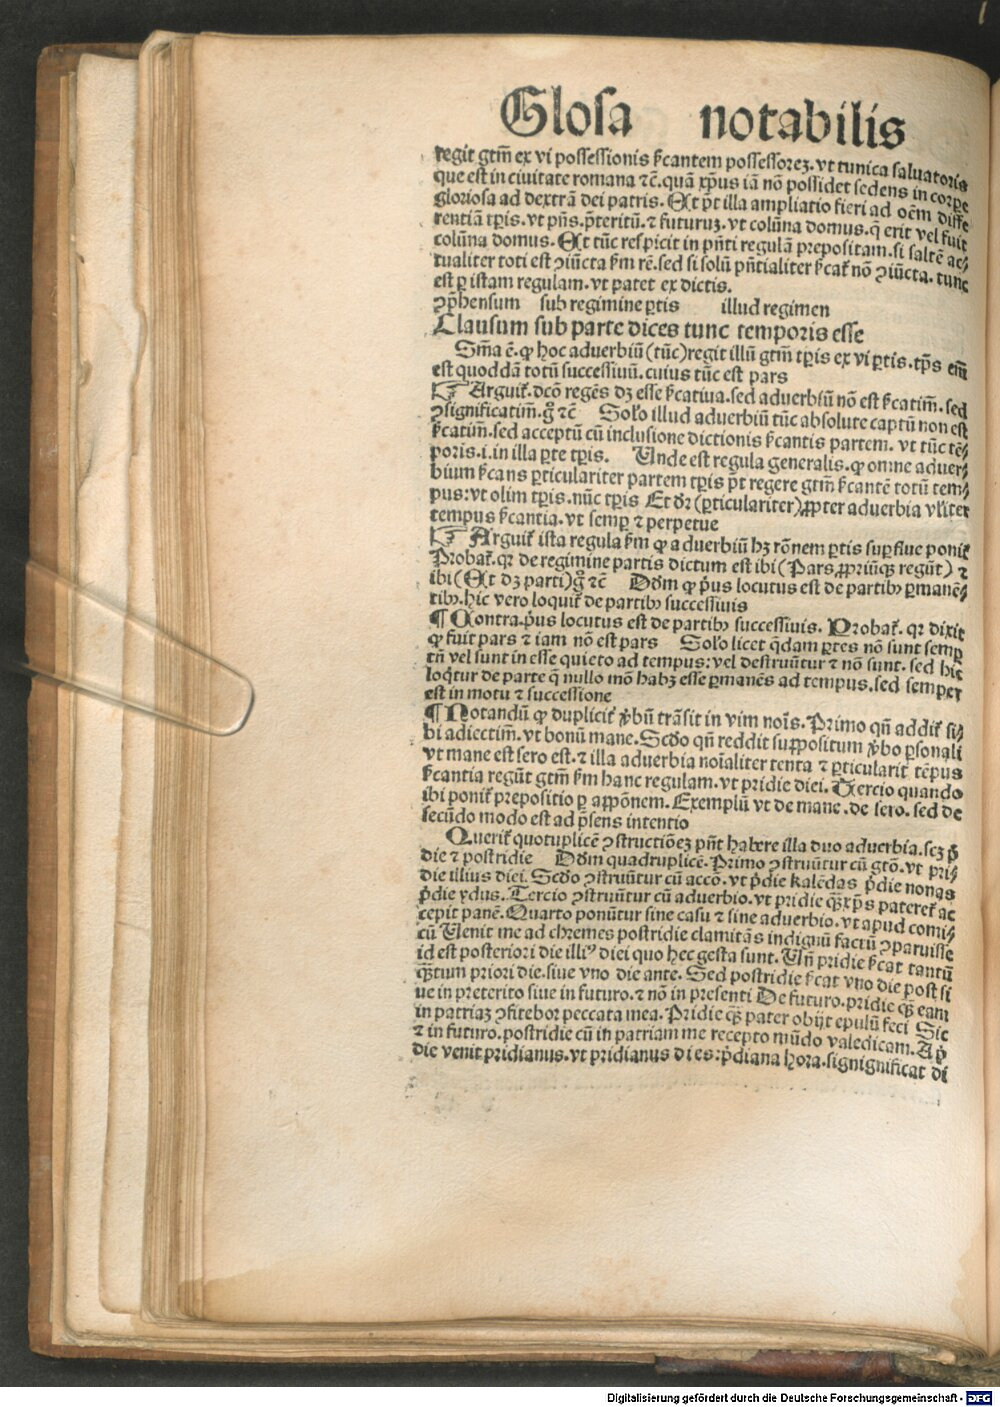 Glosa notabilis
regit gtm̄ ex vi possessionis ſcantem possessorez. vt tunica saluatoris
que est in ciuitate romana ⁊c̄. quā xp̄us iā nō possidet sedens in corpe
gloriosa ad dextrā dei patris. Et pt̄ illa ampliatio fieri ad oēm diffe
rentiā tpis. vt pn̄s. p̄teritū. ⁊ futuruz. vt colūna domus. q̄ erit vel fuit
colūna domus. Et tūc respicit in pn̄ti regulā prepositam. si saltē ac⸗
tualiter toti est ↄiūcta ſm rē. sed si solū pn̄tialiter ſcat̄ nō ↄiūcta. tunc
est ꝑ istam regulam. vt patet ex dictis.
ↄp̄hensum sub regimine ꝑtis illud regimen
Clausum sub parte dices tunc temporis esse
Sm̄a ē. ꝙ hoc aduerbiū (tūc) regit illū gtm̄ tp̄is ex vi ꝑtis. tp̄s em̄
est quoddā totū successiuū. cuius tūc est pars
☞ Arguit̄. dcō regēs dꝫ esse ſcatiua. sed aduerbiū nō est ſcatim̄. sed
ↄsignificatim̄. gͦ ⁊c̄ Solͦo illud aduerbiū tūc absolute captū non est
ſcatim̄. sed acceptū cū inclusione dictionis ſcantis partem. vt tūc tē⸗
poris. i. in illa ꝑte tp̄is. Unde est regula generalis. ꝙ omne aduer⸗
bium ſcans ꝑticulariter partem tp̄is pt̄ regere gtm̄ ſcantē totū tem⸗
pus: vt olim tp̄is. nūc tp̄is Et dr̄ (ꝑticulariter) ꝓpter aduerbia vl̄iter
tempus ſcantia. vt semꝑ ⁊ perpetue
☞ Arguit̄ ista regula ſm ꝙ aduerbiū hꝫ rōnem ꝑtis suꝑflue ponit̄
Probat̄. qꝛ de regimine partis dictum est ibi (Pars ꝓpriūqꝫ regūt) ⁊
ibi (Et dꝫ parti) gͦ ⁊c̄ Dōm ꝙ p̄us locutus est de partibꝫ ꝑmanē⸗
tibꝫ. hic vero loquit̄ de partibꝫ successiuis
¶ Contra. p̄us locutus est de partibꝫ successiuis. Probat̄. qꝛ dixit
ꝙ fuit pars ⁊ iam nō est pars Solͦo licet q̄dam ꝑtes nō sunt semꝑ
tn̄ vel sunt in esse quieto ad tempus: vel destruūtur ⁊ nō sunt. sed hic
loq̄tur de parte q̄ nullo mō habꝫ esse ꝑmanēs ad tempus. sed semper
est in motu ⁊ successione
¶ Notandū ꝙ duplicit̄ ꝟbū trāsit in vim noīs. Primo qn̄ addit̄ si⸗
bi adiectim̄. vt bonū mane. Scdo qn̄ reddit suppositum ꝟbo ꝑsonali
vt mane est sero est. ⁊ illa aduerbia noīaliter tenta ⁊ ꝑticularit̄ tēpus
ſcantia regūt gtm̄ ſm hanc regulam. vt pridie diei. Tercio quando
ibi ponit̄ prepositio ꝑ appōnem. Exemplū vt de mane. de sero. sed de
secūdo modo est ad p̄sens intentio
Querit̄ quotuplicē ↄstructiōeꝫ pn̄t habere illa duo aduerbia. scꝫ p̄
die ⁊ postridie Dōm quadruplicē. Primo ↄstruūtur cū gtō. vt pri⸗
die illius diei. Scdo ↄstruūtur cū accō. vt p̄die kalēdas p̄die nonas
p̄die ydus. Tercio ↄstruūtur cū aduerbio. vt pridie qꝫ xp̄s pateret̄ ac
cepit panē. Quarto ponūtur sine casu ⁊ sine aduerbio. vt apud comi⸗
cū Uenit me ad chremes postridie clamitās indignū factū ↄparuisse
id est posteriori die illiꝰ diei quo hec gesta sunt. Un̄ pridie ſcat tantū
qꝫtum priori die. siue vno die ante. Sed postridie ſcat vno die post si
ue in preterito siue in futuro. ⁊ nō in presenti De futuro. pridie qꝫ eam
in patriaꝫ ↄfitebor peccata mea. Pridie qꝫ pater obijt epulū feci Sic
⁊ in futuro. postridie cū in patriam me recepto mūdo valedicam. A p̄
die venit pridianus. vt pridianus dies: p̄diana hora. signignificat di
Digitalisierung gefördert durch die Deutsche Forschungsgemeinschaft - DFG